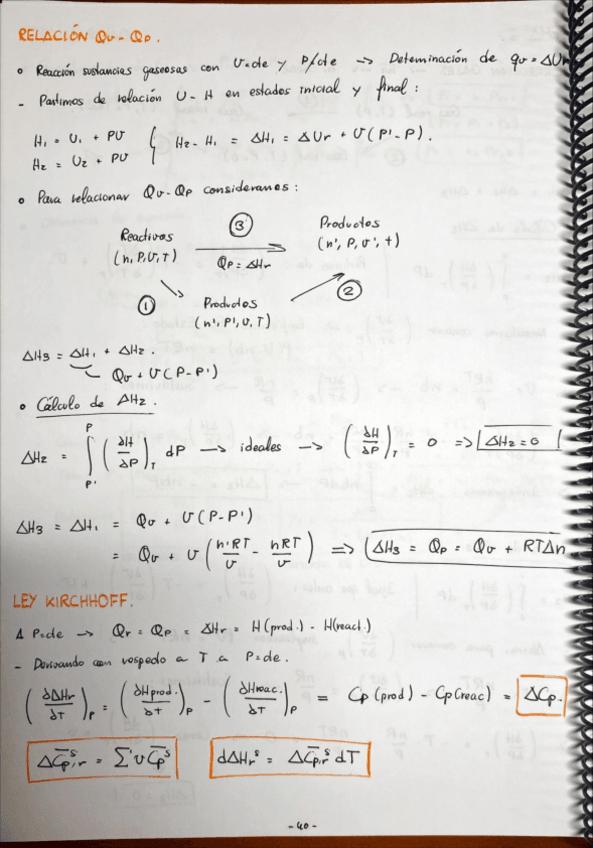 RELACIÓN Qv - Qp.
• Reacción sustancias gaseosas con V=cte y P≠cte → Determinación de qv = ΔUr
- Partimos de relación U - H en estados inicial y final:
H₁ = U₁ + PV
H₂ = U₂ + PV
H₂ - H₁ = ΔH₁ = ΔUr + V(P' - P).
• Para relacionar Qv - Qp consideramos:
Reactivos (n, P, V, T)
③
Qp = ΔHr
Productos (n', P, V', t)
①
Productos (n', P', V, T)
②
ΔH3 = ΔH₁ + ΔH₂.
Qv + V(P - P')
• Cálculo de ΔH₂.
ΔH₂ = ∫_{P'}^{P} (δH/δP)_T dP → ideales → (δH/δP)_T = 0 => ΔH₂ = 0
ΔH3 = ΔH₁ = Qv + V(P - P')
= Qv + V(n'RT/V - nRT/V) => ΔH3 = Qp = Qv + RTΔn
LEY KIRCHHOFF.
A P=cte → Qr = Qp = ΔHr = H(prod.) - H(react.)
- Derivando con respecto a T a P=cte.
(δΔHr/δT)_P = (δHprod./δt)_P - (δHreac./δT)_P = Cp(prod) - Cp(reac) = ΔCp.
ΔC̄p,r^s = Σ υ C̄p^s
dΔHr^s = ΔC̄p,r^s dT
- 40 -